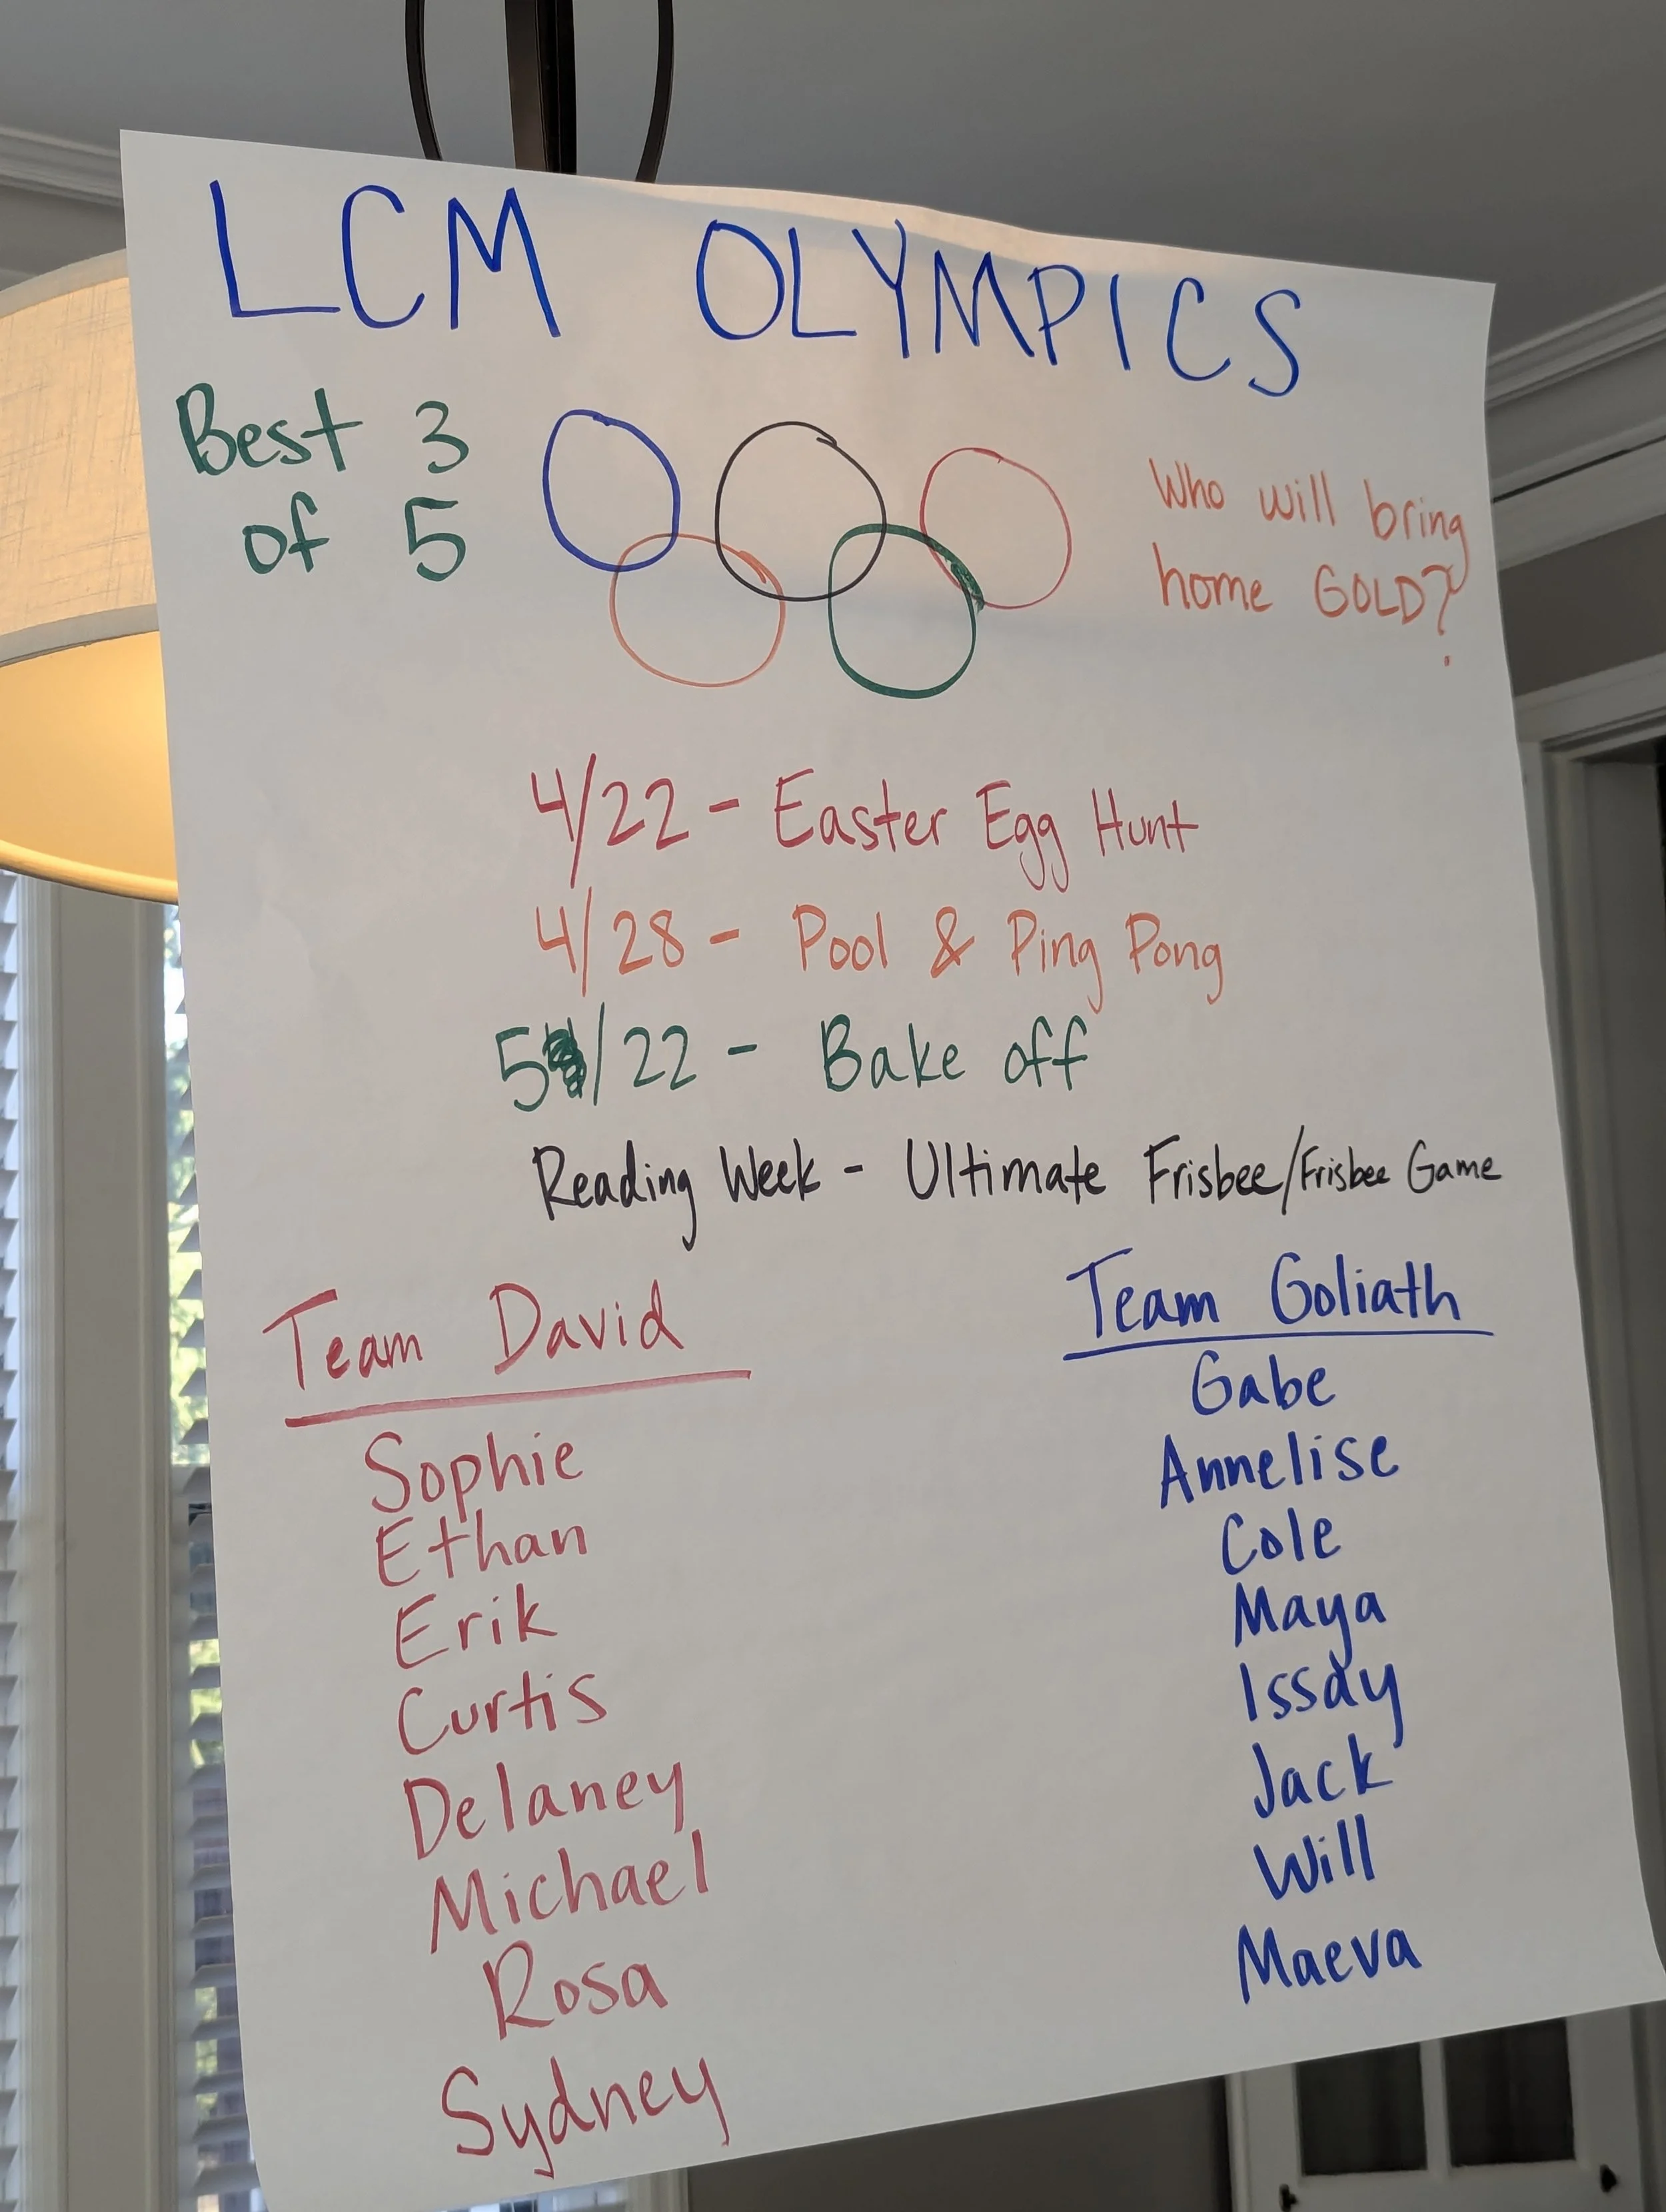 LCM OLYMPICS
Best 3
of 5
Who will bring
home GOLD?
4/22 - Easter Egg Hunt
4/28 - Pool & Ping Pong
5/22 - Bake off
Reading Week - Ultimate Frisbee/Frisbee Game
Team David
Sophie
Ethan
Erik
Curtis
Delaney
Michael
Rosa
Sydney
Team Goliath
Gabe
Annelise
Cole
Maya
Issay
Jack
Will
Maeva